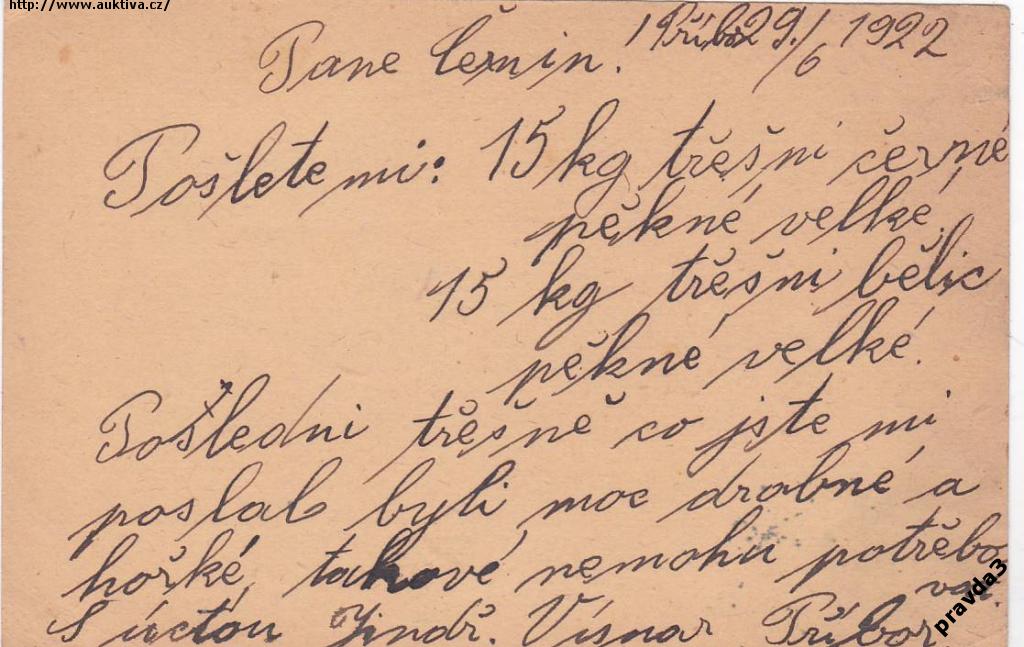 http://www.auktiva.cz/
Příbor 29./6 1922
Pane Černin!
Pošlete mi: 15 kg třešni černé
pěkné velké.
15 kg třešni bělic
pěkné velké.
Pošledni třěšně co jste mi
poslal byli moc drabné a
hořké, takové nemohu potřebo
vat.
S úctou Jindř. Vísnar Příbor
pravda3